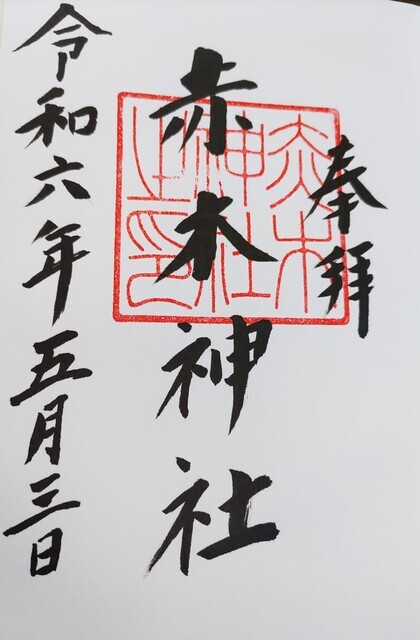 奉拜
赤木神社
赤木
神社
之印
令和六年五月三日